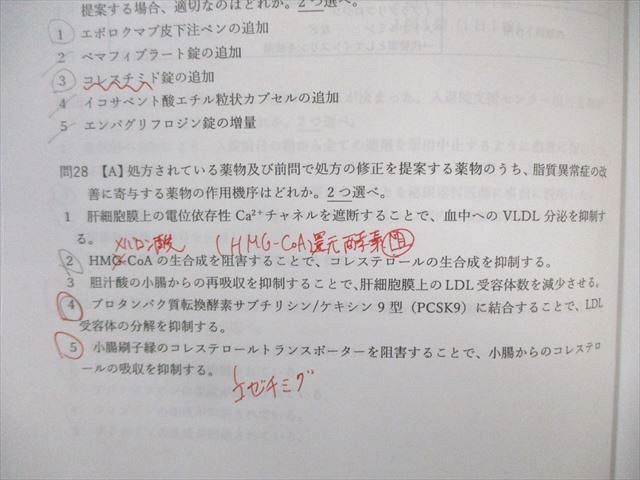 提案する場合、適切なのはどれか。2つ選べ。
1 エボロクマブ皮下注ペンの追加
2 ペマフィブラート錠の追加
3 コレスチミド錠の追加
4 イコサペント酸エチル粒状カプセルの追加
5 エンパグリフロジン錠の増量
問28 【A】処方されている薬物及び前問で処方の修正を提案する薬物のうち、脂質異常症の改
善に寄与する薬物の作用機序はどれか。2つ選べ。
1 肝細胞膜上の電位依存性 Ca²⁺チャネルを遮断することで、血中への VLDL 分泌を抑制す
る。
メバロン酸 (HMG-CoA還元酵素阻)
2 HMG-CoA の生合成を阻害することで、コレステロールの生合成を抑制する。
3 胆汁酸の小腸からの再吸収を抑制することで、肝細胞膜上の LDL 受容体数を減少させる。
4 プロタンパク質転換酵素サブチリシン/ケキシン 9 型 (PCSK9) に結合することで、LDL
受容体の分解を抑制する。
5 小腸刷子縁のコレステロールトランスポーターを阻害することで、小腸からのコレステロ
ールの吸収を抑制する。
エゼチミブ